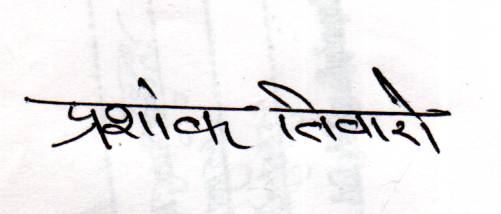 प्रशांक तिवारी